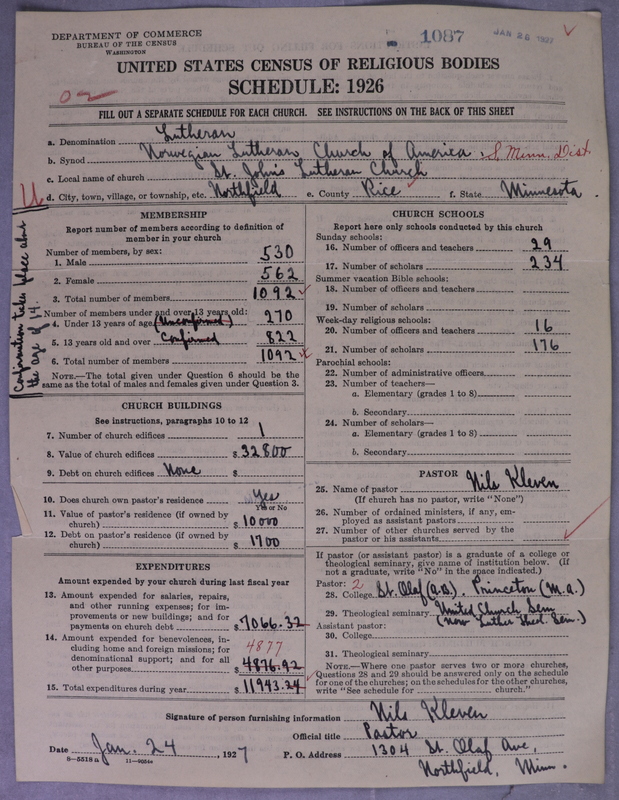 DEPARTMENT OF COMMERCE
BUREAU OF THE CENSUS
WASHINGTON
1087
JAN 26 1927
UNITED STATES CENSUS OF RELIGIOUS BODIES
SCHEDULE: 1926
FILL OUT A SEPARATE SCHEDULE FOR EACH CHURCH. SEE INSTRUCTIONS ON THE BACK OF THIS SHEET
a. Denomination Lutheran
b. Synod Norwegian Lutheran Church of America, S. Minn. Dist
c. Local name of church St. John's Lutheran Church
d. City, town, village, or township, etc. Northfield e. County Rice f. State Minnesota.
Confirmation takes place about
the age of 14.
MEMBERSHIP
Report number of members according to definition of
member in your church
Number of members, by sex:
1. Male 530
2. Female 562
3. Total number of members 1092
Number of members under and over 13 years old:
4. Under 13 years of age (Unconfirmed) 270
5. 13 years old and over Confirmed 822
6. Total number of members 1092
NOTE.—The total given under Question 6 should be the
same as the total of males and females given under Question 3.
CHURCH BUILDINGS
See instructions, paragraphs 10 to 12
7. Number of church edifices 1
8. Value of church edifices $ 32800
9. Debt on church edifices None $
10. Does church own pastor's residence Yes
Yes or No
11. Value of pastor's residence (if owned by
church) $ 10000
12. Debt on pastor's residence (if owned by
church) $ 1700
EXPENDITURES
Amount expended by your church during last fiscal year
13. Amount expended for salaries, repairs,
and other running expenses; for im-
provements or new buildings; and for
payments on church debt $ 7066.32
14. Amount expended for benevolences, in-
cluding home and foreign missions; for
denominational support; and for all
other purposes $ 4876.92
4877
15. Total expenditures during year $ 11943.24
CHURCH SCHOOLS
Report here only schools conducted by this church
Sunday schools:
16. Number of officers and teachers 29
17. Number of scholars 234
Summer vacation Bible schools:
18. Number of officers and teachers
19. Number of scholars
Week-day religious schools:
20. Number of officers and teachers 16
21. Number of scholars 176
Parochial schools:
22. Number of administrative officers
23. Number of teachers—
a. Elementary (grades 1 to 8)
b. Secondary
24. Number of scholars—
a. Elementary (grades 1 to 8)
b. Secondary
PASTOR
25. Name of pastor Nils Kleven
(If church has no pastor, write "None")
26. Number of ordained ministers, if any, em-
ployed as assistant pastors
27. Number of other churches served by the
pastor or his assistants
If pastor (or assistant pastor) is a graduate of a college or
theological seminary, give name of institution below. (If
not a graduate, write "No" in the space indicated.)
Pastor: 2
28. College St. Olaf (A.B.). Princeton (M.A.)
29. Theological seminary United Church Sem.
(Now Luther Theol. Sem.)
Assistant pastor:
30. College
31. Theological seminary
NOTE.—Where one pastor serves two or more churches,
Questions 28 and 29 should be answered only on the schedule
for one of the churches; on the schedules for the other churches,
write "See schedule for church."
Signature of person furnishing information Nils Kleven
Official title Pastor
Date Jan. 24, 1927 P. O. Address 1304 St. Olaf Ave,
Northfield, Minn.
8—5518 a